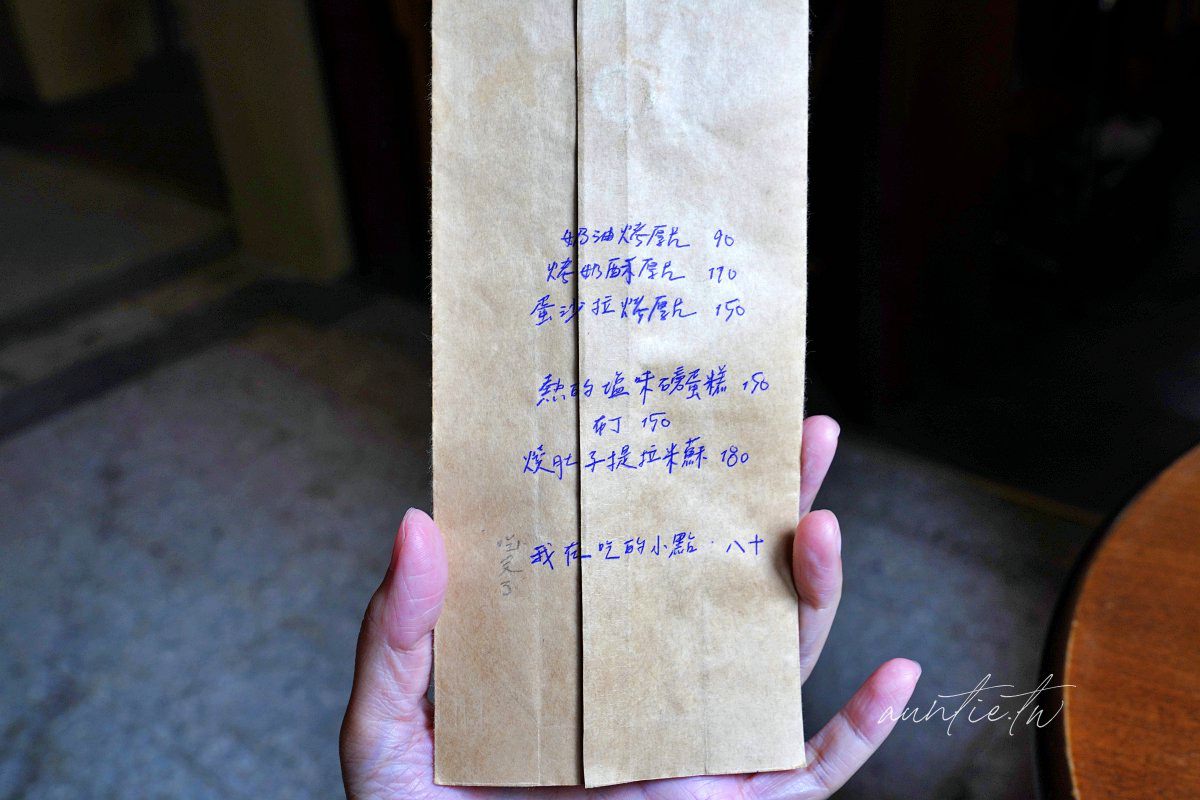 奶油烤厚片 90
烤奶酥厚片 110
蛋沙拉烤厚片 150
熱的塩味磅蛋糕 150
布丁 150
燒肚子提拉米蘇 180
我在吃的小點．八十
吃完了
auntie.tw